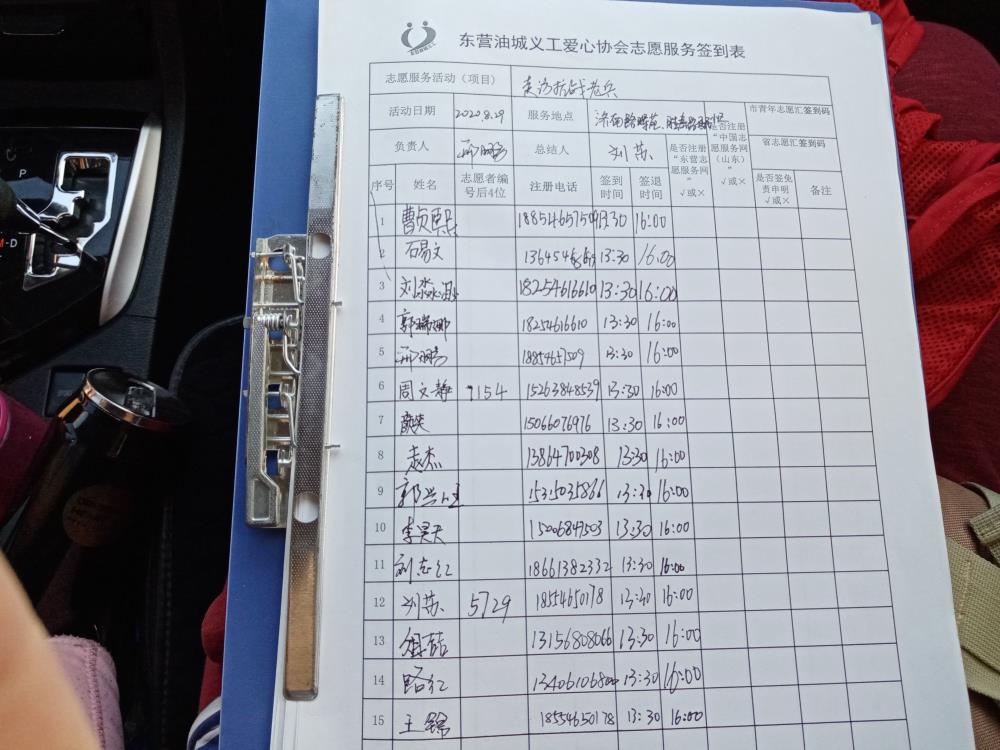 东营油城义工爱心协会志愿服务签到表
志愿服务活动（项目） 走访抗战老兵
活动日期 2020.8.29 服务地点 市青年志愿汇签到码
负责人 总结人 刘苏 省志愿汇签到码
是否注册“东营志愿服务网” √或× 是否注册“中国志愿服务网（山东） √或× 是否签免责申明 √或× 备注
序号 姓名 志愿者编号后4位 注册电话 签到时间 签退时间
1 18854657509 13:30 16:00
2 石易文 13:30 16:00
3 18254616610 13:30 16:00
4 郭瑞娜 18254616610 13:30 16:00
5 18854657509 13:30 16:00
6 周文静 7154 15263848539 13:30 16:00
7 15066076976 13:30 16:00
8 袁杰 13864700308 13:30 16:00
9 13:30 16:00
10 李昊天 15006847503 13:30 16:00
11 刘志红 18661382332 13:30 16:00
12 刘苏 5729 18554650178 13:30 16:00
13 13156808066 13:30 16:00
14 路红 13:30 16:00
15 王锦 18554650178 13:30 16:00
P
M-D